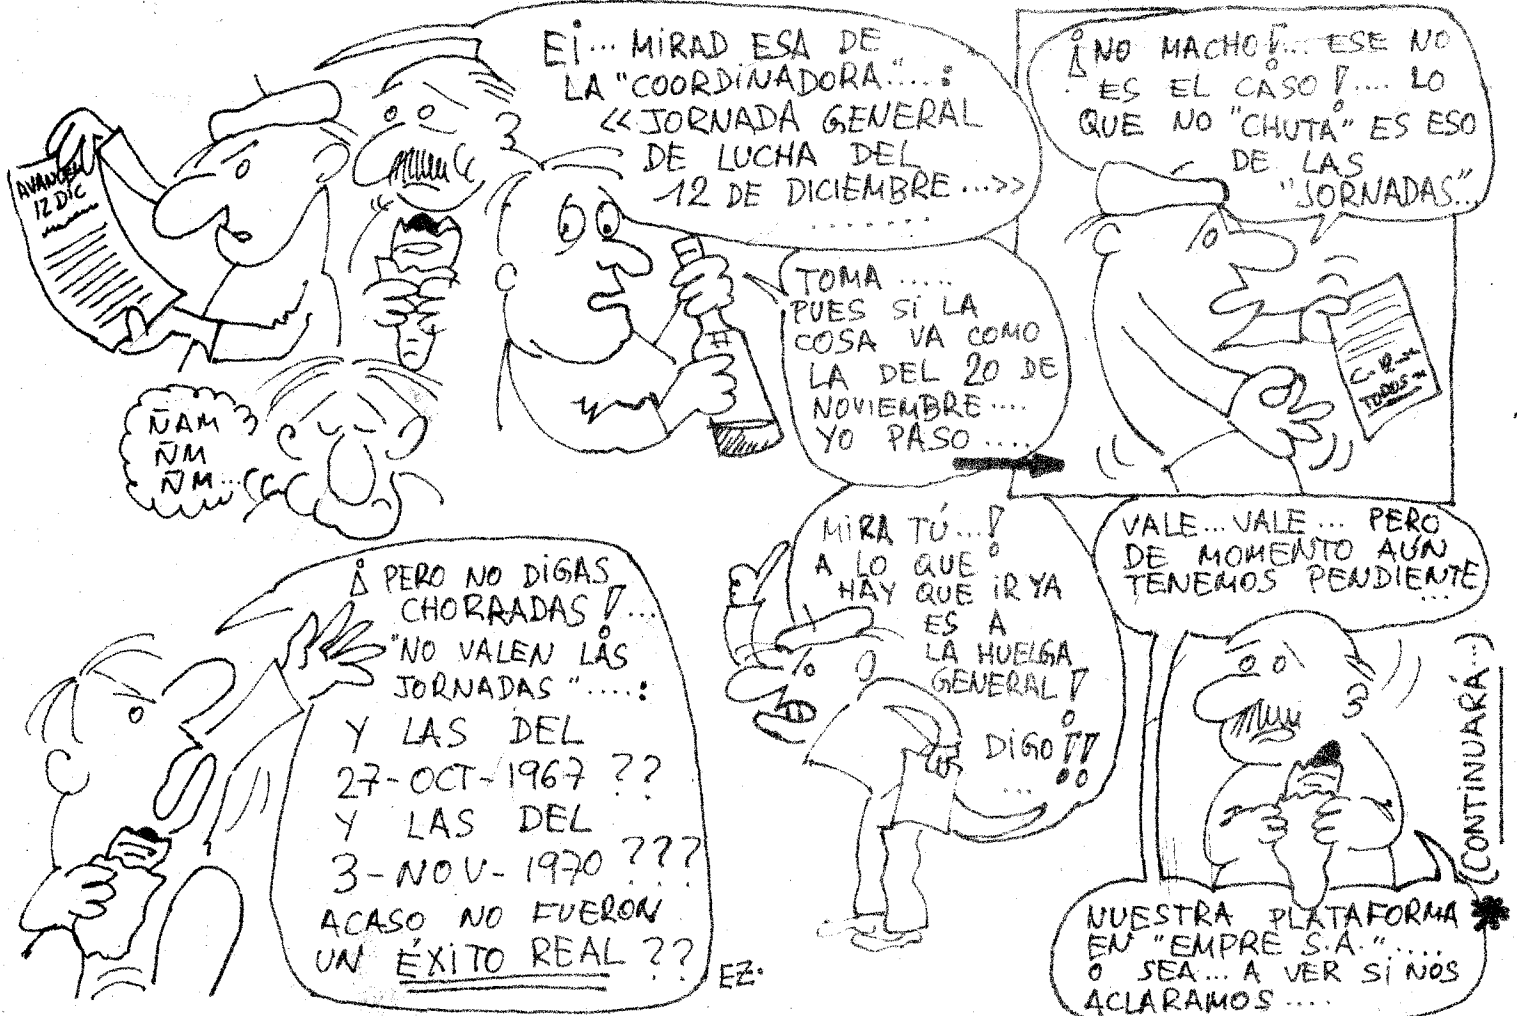 AVANCEM
12 DIC
EI... MIRAD ESA DE
LA "COORDINADORA"....:
<<JORNADA GENERAL
DE LUCHA DEL
12 DE DICIEMBRE...>>
......
ÑAM
ÑM
ÑM...
TOMA .....
PUES SI LA
COSA VA COMO
LA DEL 20 DE
NOVIEMBRE....
YO PASO....
¡NO MACHO!... ESE NO
ES EL CASO!.... LO
QUE NO "CHUTA" ES ESO
DE LAS
"JORNADAS"...
TODOS
¡PERO NO DIGAS
CHORRADAS!...
"NO VALEN LAS
JORNADAS"....:
Y LAS DEL
27-OCT-1967 ??
Y LAS DEL
3-NOV-1970 ???
ACASO NO FUERON
UN ÉXITO REAL ??
EZ.
MIRA TÚ...!
A LO QUE
HAY QUE IR YA
ES A
LA HUELGA
GENERAL!
DIGO!!
...
VALE... VALE... PERO
DE MOMENTO AÚN
TENEMOS PENDIENTE
...
NUESTRA PLATAFORMA
EN "EMPRE S.A."....
O SEA... A VER SI NOS
ACLARAMOS....
(CONTINUARÁ...)